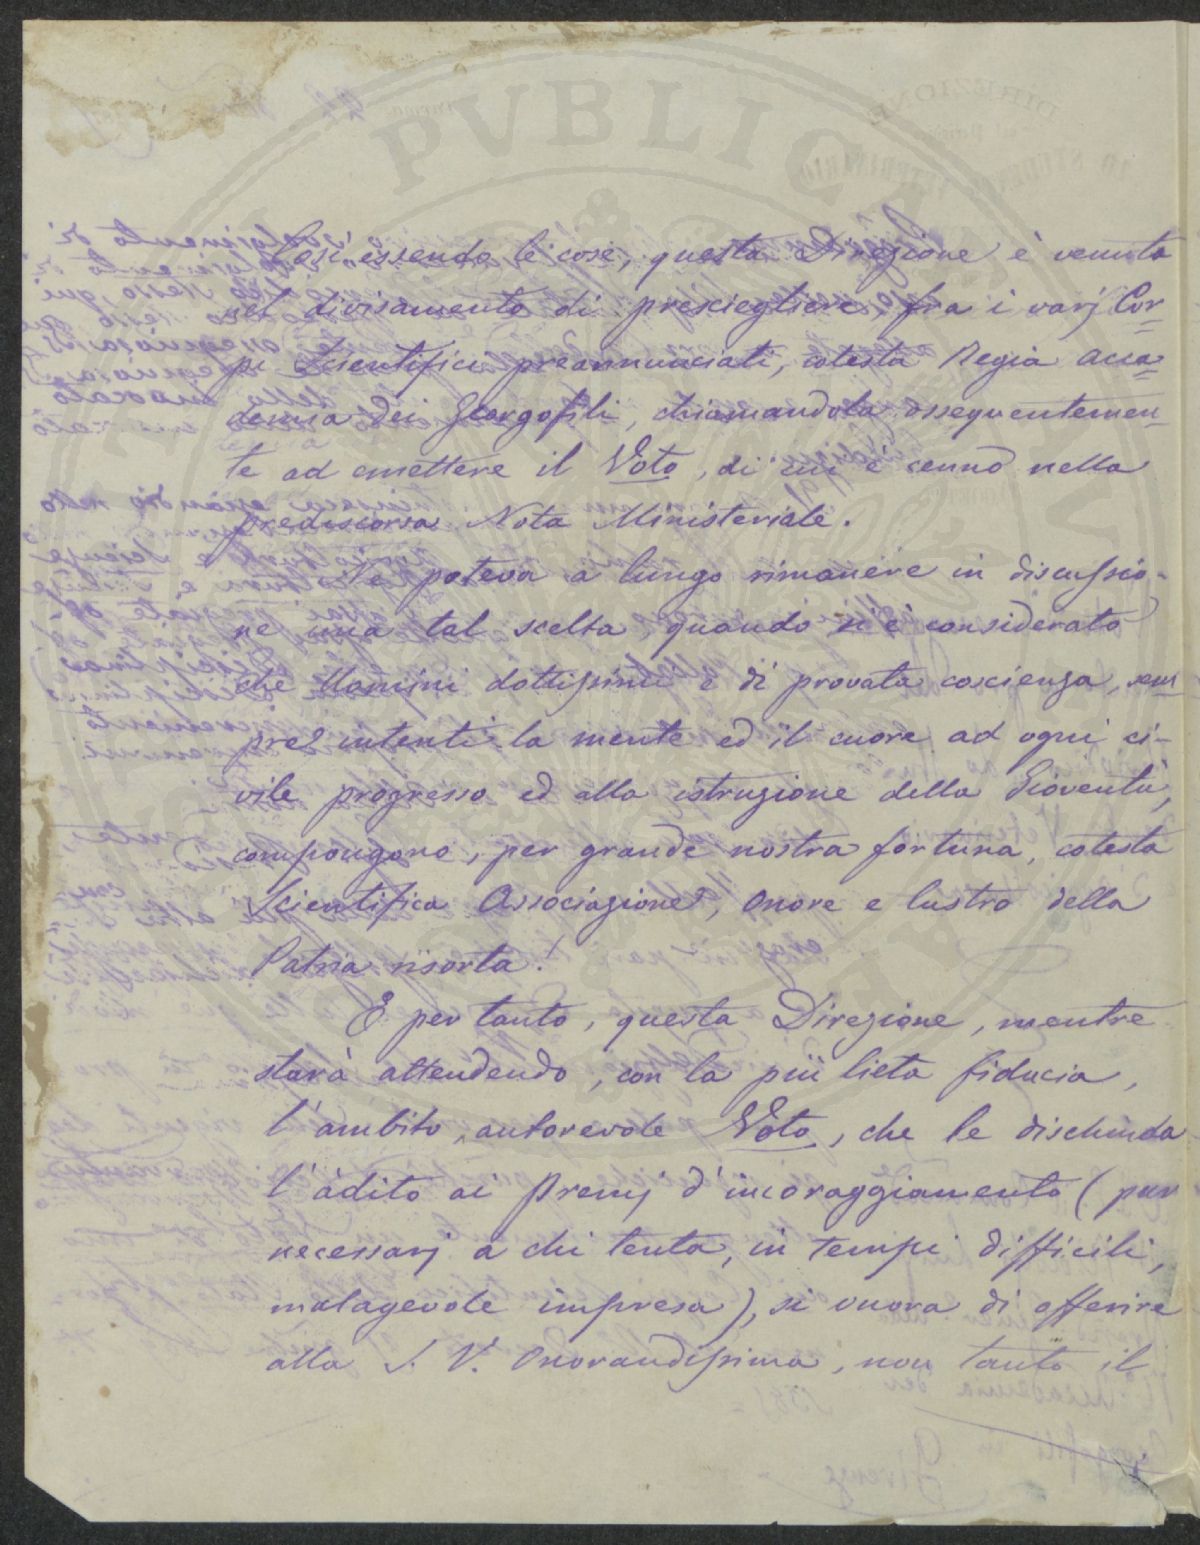 Così essendo le cose, questa Direzione è venuta
nel divisamento di prescegliere, fra i varj Cor-
pi Scientifici preannunciati, cotesta Regia Acca-
demia dei Georgofili, chiamandola ossequentemen-
te ad emettere il Voto, di cui è cenno nella
prediscorsa Nota Ministeriale.
Ne poteva a lungo rimanere in discussio-
ne una tal scelta, quando si è considerato
che Uomini dottissimi e di provata coscienza, sem-
pre intenti la mente ed il cuore ad ogni ci-
vile progresso ed alla istruzione della Gioventù,
compongono, per grande nostra fortuna, cotesta
Scientifica Associazione, onore e lustro della
Patria risorta!
E per tanto, questa Direzione, mentre
starà attendendo, con la più lieta fiducia,
l'ambito, autorevole Voto, che le dischiuda
l'àdito ai Premj d'incoraggiamento (pur
necessarj a chi tenta, in tempi difficili,
malagevole impresa), si onora di offerire
alla S. V. Onorandissima, non tanto il